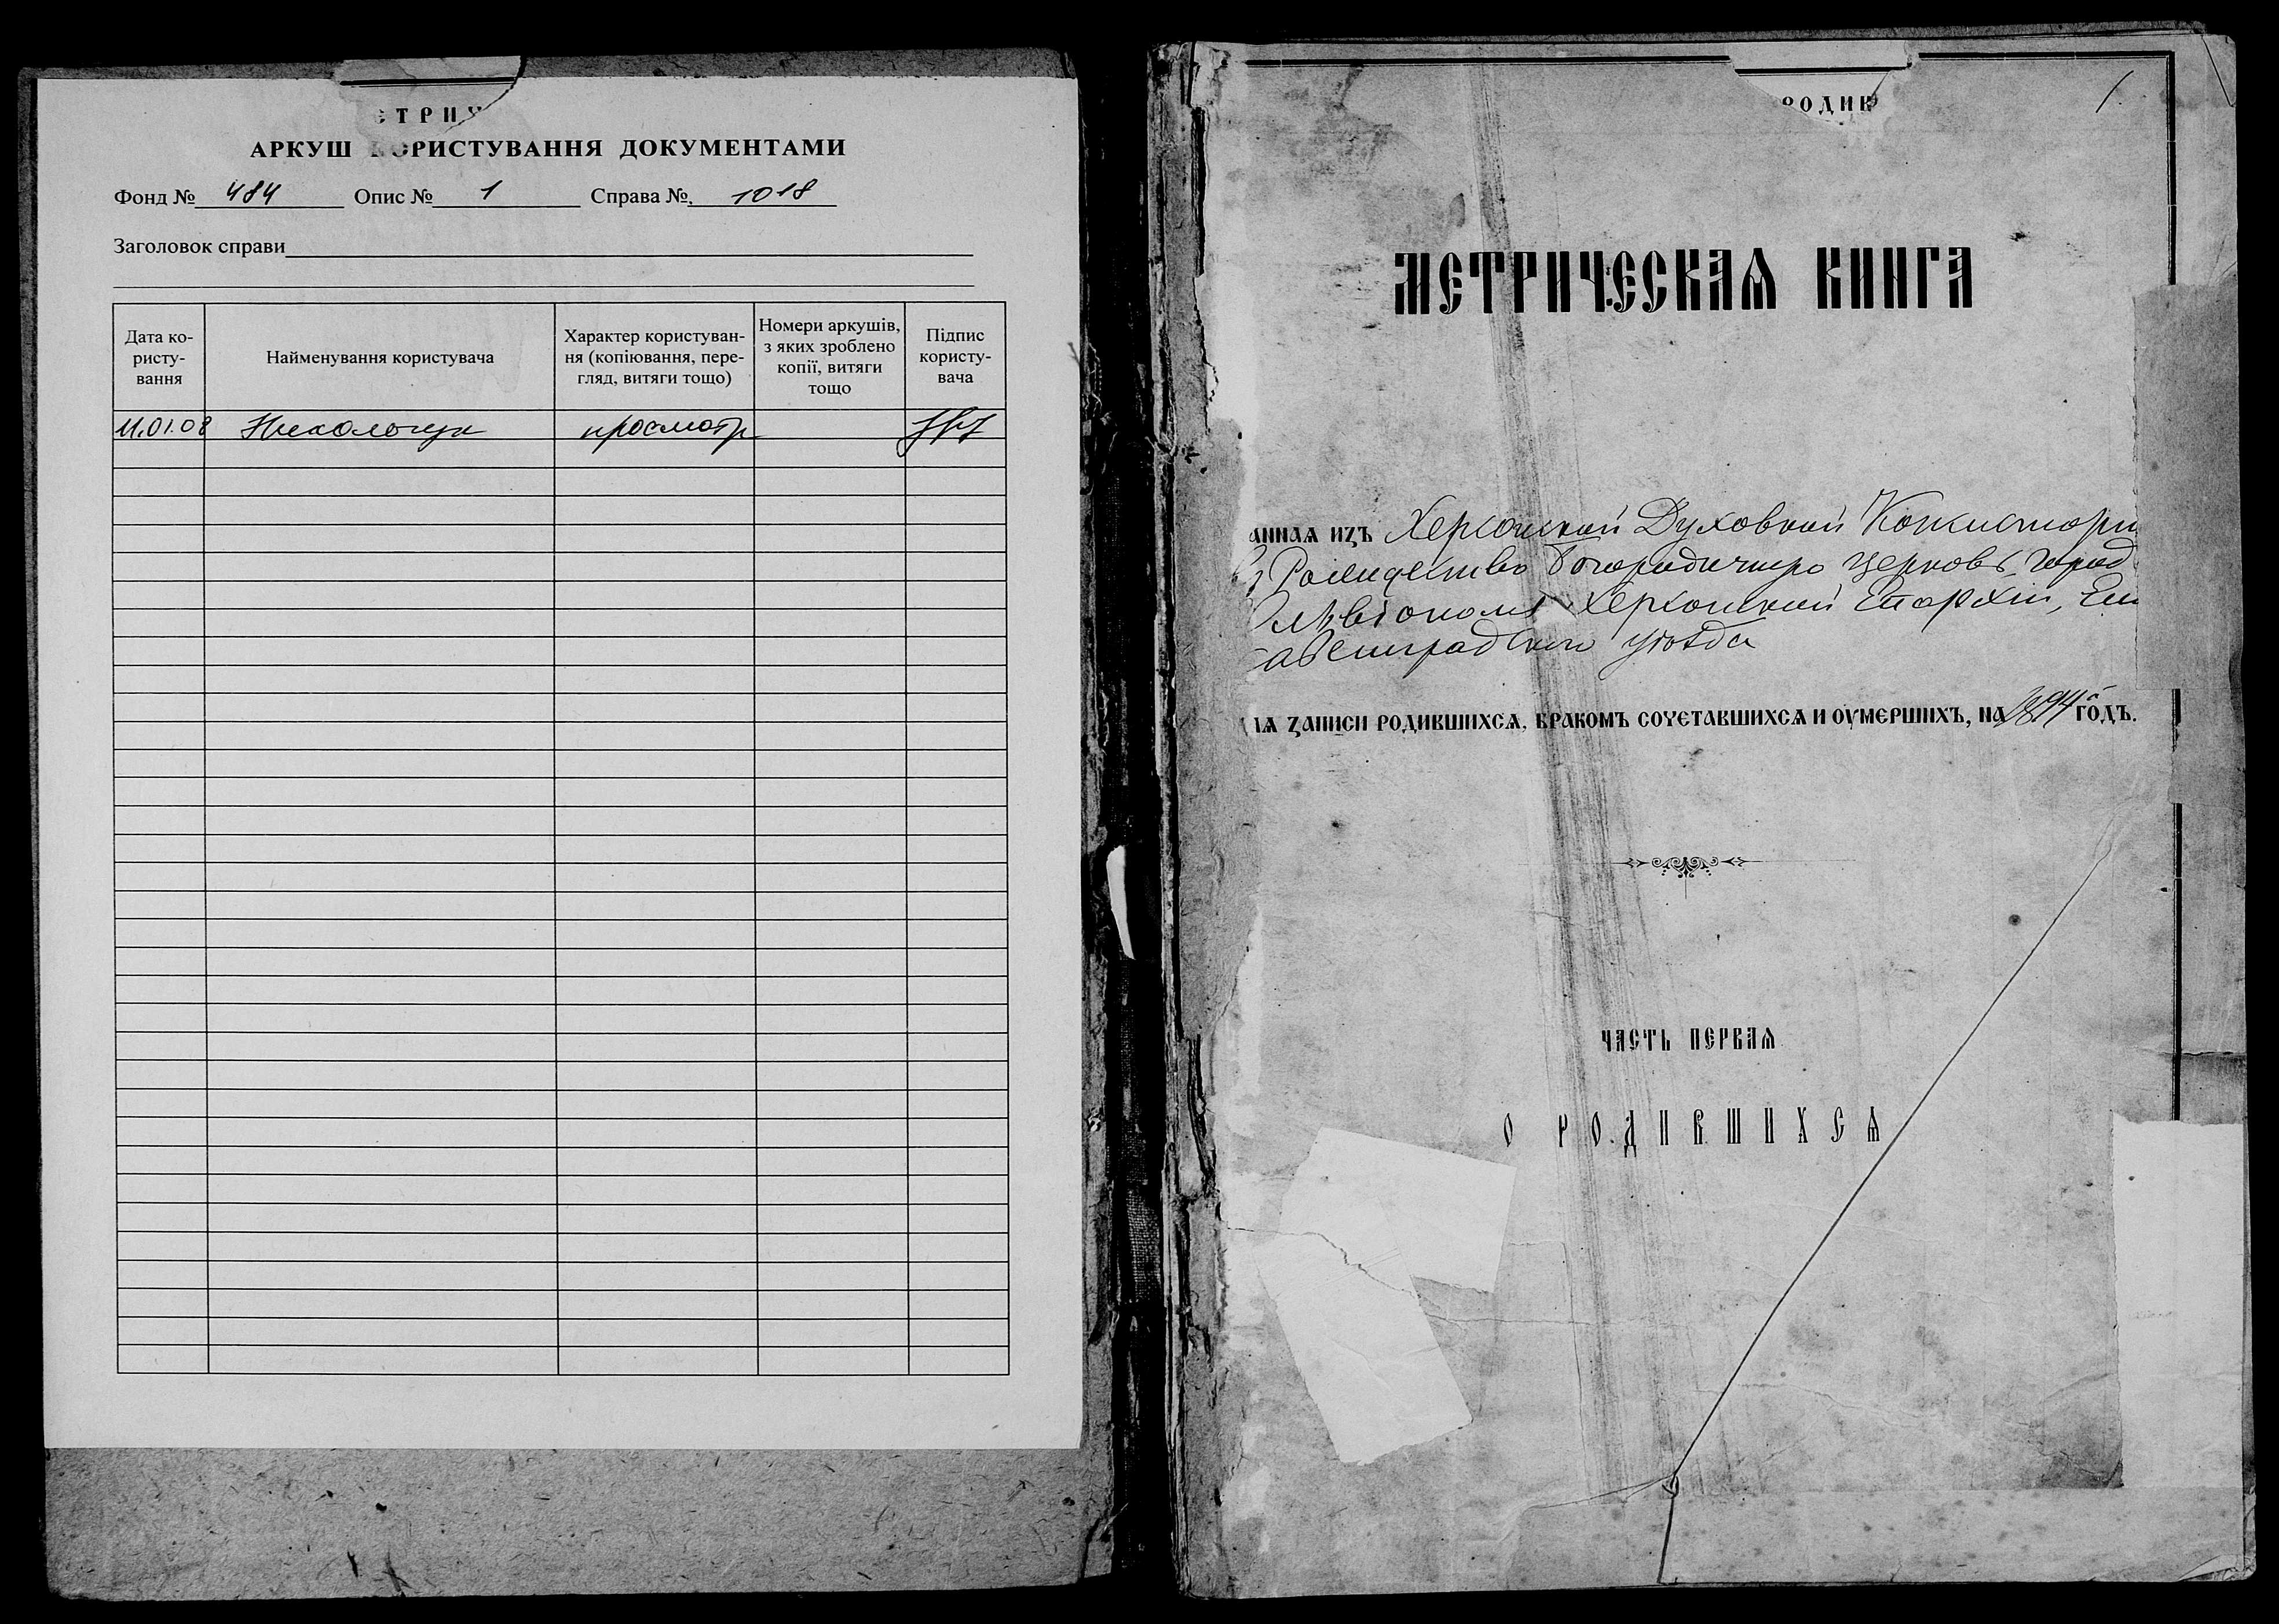 СТРИЧ
АРКУШ КОРИСТУВАННЯ ДОКУМЕНТАМИ
Фонд № 484 Опис № 1 Справа № 1018
Заголовок справи
Дата ко-
ристу-
вання
Найменування користувача
Характер користуван-
ня (копіювання, пере-
гляд, витяги тощо)
Номери аркушів,
з яких зроблено
копії, витяги
тощо
Підпис
користу-
вача
11.01.08 просмотр
РОДИВ
1.
МЕТРИЧЕСКАѦ КНИГА
аннаѧ изъ Херсонской Духовной Консистори
Рождество Богородичную церковь город
Херсонской Епархіи, Ели
саветградскаго уѣзда
лѧ записи родившихсѧ, бракомъ сочетавшихсѧ и оумершихъ, на 1894 годъ.
ЧАСТЬ ПЕРВАѦ
О РОДИВШИХСѦ